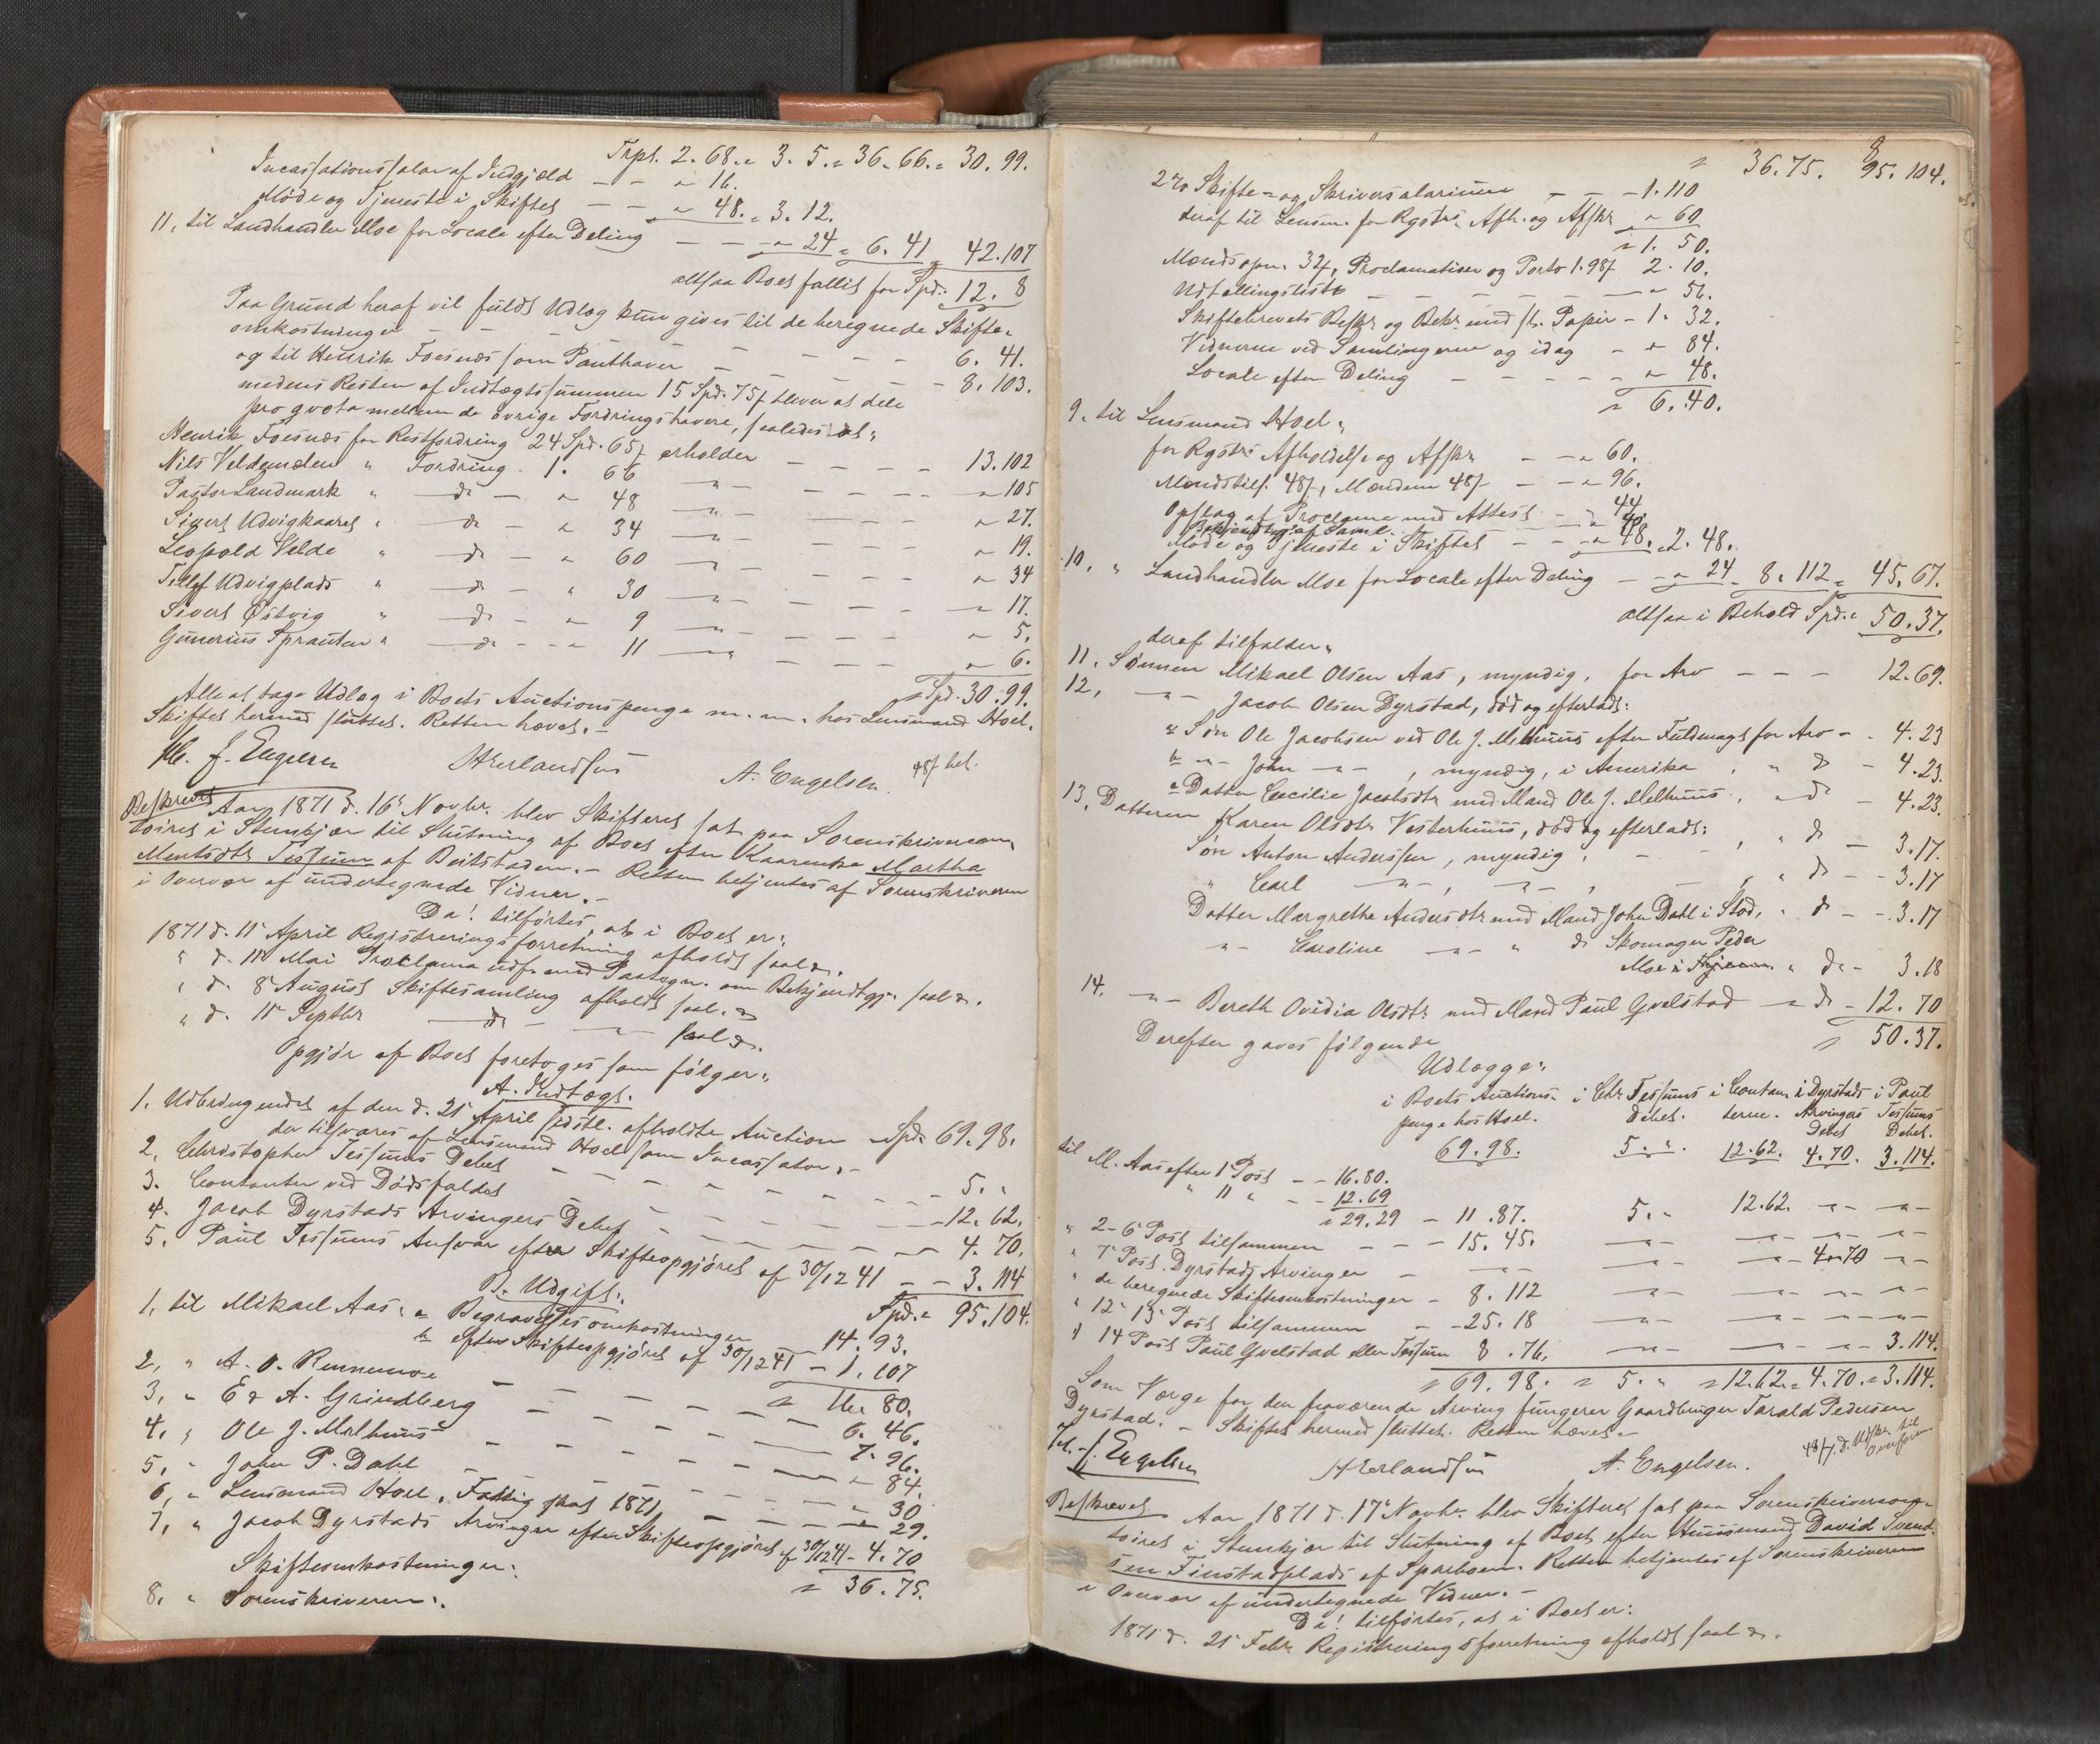 Trpt. 2. 68. " 3. 5. " 36. 66. " 30. 99.
Incassationssalar af Indgjæld — — " 16.
Møde og Tjeneste i Skiftet — — " 48. " 3. 12.
11, til Landhandler Moe for Locale efter Deling — — " 24 " 6. 41 " 42. 107
altsaa Boet fallit for Spd. 12. 8
Paa Grund heraf vil fuldt Udlæg kun gives til de beregnede Skifte-
omkostninger — — — 6. 41.
og til Henrik Fosnæs som Panthaver — — 8. 103.
medens Resten af Indtægtssummen 15 Spd. 75 s bliver at dele
pro qvota mellem de øvrige Fordringshavere, saaledes at:
Henrik Fosnæs for Restfordring 24 Spd. 65 s erholder — — — 13. 102
Nils Veldemælen " Fordring 1. 66 — " — " 105
Pastor Landmark " — do — " 48 — " — " 27.
Sivert Udvigkaaret " — do — " 34 — " — " 19.
Leopold Velde " — do — " 60 — " — " 34
Tellef Udvigplads " — do — " 30 — " — " 17.
Sivert Østvig " — do — " 9 — " — " 5.
Gunerius Sprauten " — do — " 11 — " — " 6.
Spd. 30. 99.
Alle at tage Udlæg i Boets Auctionspenge m. m. hos Lensmand Hoel.
Skiftet hermed sluttet. Retten hævet. —
J. Engelsen HErlandsen A. Engelsen. 48 s bet.
Beskrevet Aar 1871 d. 16de Novbr. blev Skifteret sat paa Sorenskrivercon-
toiret i Stenkjær til Slutning af Boet efter Kaarenke Martha
Mentsdtr Tessum af Beitstaden. — Retten betjentes af Sorenskriveren
i Overvær af undertegnede Vidner. —
Da! tilførtes, at i Boet er:
1871 d. 11te April Registreringsforretning afholdt saal.
" d. 11te Mai Proclama udf. med Paategn. om Bekjendtgj. saal.
" d. 8de August Skiftesamling afholdt saal.
" d. 11te Septbr — do — saal.
Opgjør af Boet foretoges som følger:
A. Indtægt.
1. Udbringendet af den d. 25 April sidstl. afholdte Auction — Spd. 69. 98.
der tilsvares af Lensmand Hoel som Incassator. —
2, Christopher Tessums Debet — — — 5. "
3. Contanter ved Dødsfaldet — — — 12. 62.
4. Jacob Dyrstads Arvingers Debet — — — 4. 70.
5. Paul Tessums Ansvar efter Skifteopgjøret af 30/12 41 — — 3. 114
Spd. 95. 104.
B. Udgift.
1, til Mikael Aas: a Begravelsesomkostninger 14. 93.
b efter Skifteopgjøret af 30/12 41 — 1. 107
" 16. 80.
2, " A. O. Rennemo — — — 6. 46.
3, " E & A. Grindberg — — — 7. 96.
4, " Ole J. Melhuus — — — " 84.
5, " John P. Dahl — — — " 30
6, " Lensmand Hoel, Fattigskat 1871 — — — " 29.
7, " Jacob Dyrstads Arvinger efter Skifteopgjøret af 30/12 41 — 4. 70
" 36. 75.
Skifteomkostninger:
8. " Sorenskriveren:
" 36. 75. 95. 104.
2 % Skifte- og Skriversalarium — — 1. 110
deraf til Lensm. for Rgstr. Afh. og Afskr " 60
" 1. 50.
Mændsopn. 32 s, Proclamation og Porto 1. 98 s 2. 10.
Udtællingsliste — — — " 56.
Skiftebrevets Beskr og Bekr med st. Papir — 1. 32.
Vidnerne ved Samlingerne og idag — " 84.
Locale efter Deling — — — " 48.
" 6. 40.
9. til Lensmand Hoel:
for Rgstrs Afholdelse og Afskr — — " 60.
Mændstils. 48 s, Mændene 48 s — — " 96.
Opslag af Proclama med Attest — " 44
Bekjendtgj. af Saml. — " 40
Møde og Tjeneste i Skiftet — — " 48. " 2. 48.
10, " Landhandler Moe for Locale efter Deling — — " 24 " 8. 112 " 45. 67.
altsaa i Behold Spd. 50. 37.
deraf tilfalder:
11, Sønnen Mikael Olsen Aas, myndig, for Arv — — — 12. 69.
12, — " — Jacob Olsen Dyrstad, død og efterladt:
a Søn Ole Jacobsen ved Ole J. Melhuus efter Fuldmagt for Arv — 4. 23
b — " — John — " —, myndig, i Amerika " do — 4. 23.
c Datter Cecilie Jacobsdtr med Mand Ole J. Melhuus, " do — 4. 23.
13, Datteren Karen Olsdtr Vesterhuus, død og efterladt:
Søn Anton Anderssen, myndig, — — " do — 3. 17.
" Carl — " —, — " —, — " do — 3. 17
Datter Margrethe Andersdtr med Mand John Dahl i Stod, " do — 3. 17
— " — Caroline — " — " do Skomager Peder
Moe " do — 3. 18
14. — " — Bereth Ovidia Olsdtr med Mand Paul Qvelstad — " do — 12. 70
" 50. 37.
Derefter gaves følgende
Udlægge:
i Boets Auctions- penge hos Hoel. i Chr. Tessums Debet. i Contan- terne. i Dyrstads Arvingers Debet i Paul Tessums Debet.
69. 98. 5. ". 12. 62. 4. 70. 3. 114.
til M. Aas efter 1 Post — — 16. 80.
" 11 " — — 12. 69
" 29. 29 — 11. 87. 5. " 12. 62. — " — — " —
" 2-6 Post tilsammen — — — 15. 45. — " — — " — — " — — " —
" 7de Post. Dyrstads Arvinger — — " — — " — — " — 4. 70 — " —
" de beregnede Skifteomkostninger — 8. 112 — " — — " — — " — — " —
" 12-13 Post tilsammen — — 25. 18 — " — — " — — " — — " —
" 14 Post Paul Qvelstad eller Tessum 8. 76. — " — — " — — " — 3. 114.
" 69. 98. " 5. " " 12. 62. " 4. 70. " 3. 114.
Som Værge for den fraværende Arving fungerer Gaardbruger Tarald Pedersen
Dyrstad. — Skiftet hermed sluttet. Retten hævet. —
J. Engelsen HErlandsen A. Engelsen. 48 s. d. Udskr. til Overform
Beskrevet Aar 1871 d. 17de Novbr. blev Skifteret sat paa Sorenskrivercon-
toiret i Stenkjær til Slutning af Boet efter Huusmand David Svend-
sen Finstadplads af Sparboen. Retten betjentes af Sorenskriveren
i Overvær af undertegnede Vidner. —
Da! tilførtes, at i Boet er:
1871 d. 25 Febr. Registreringsforretning afholdt saal.